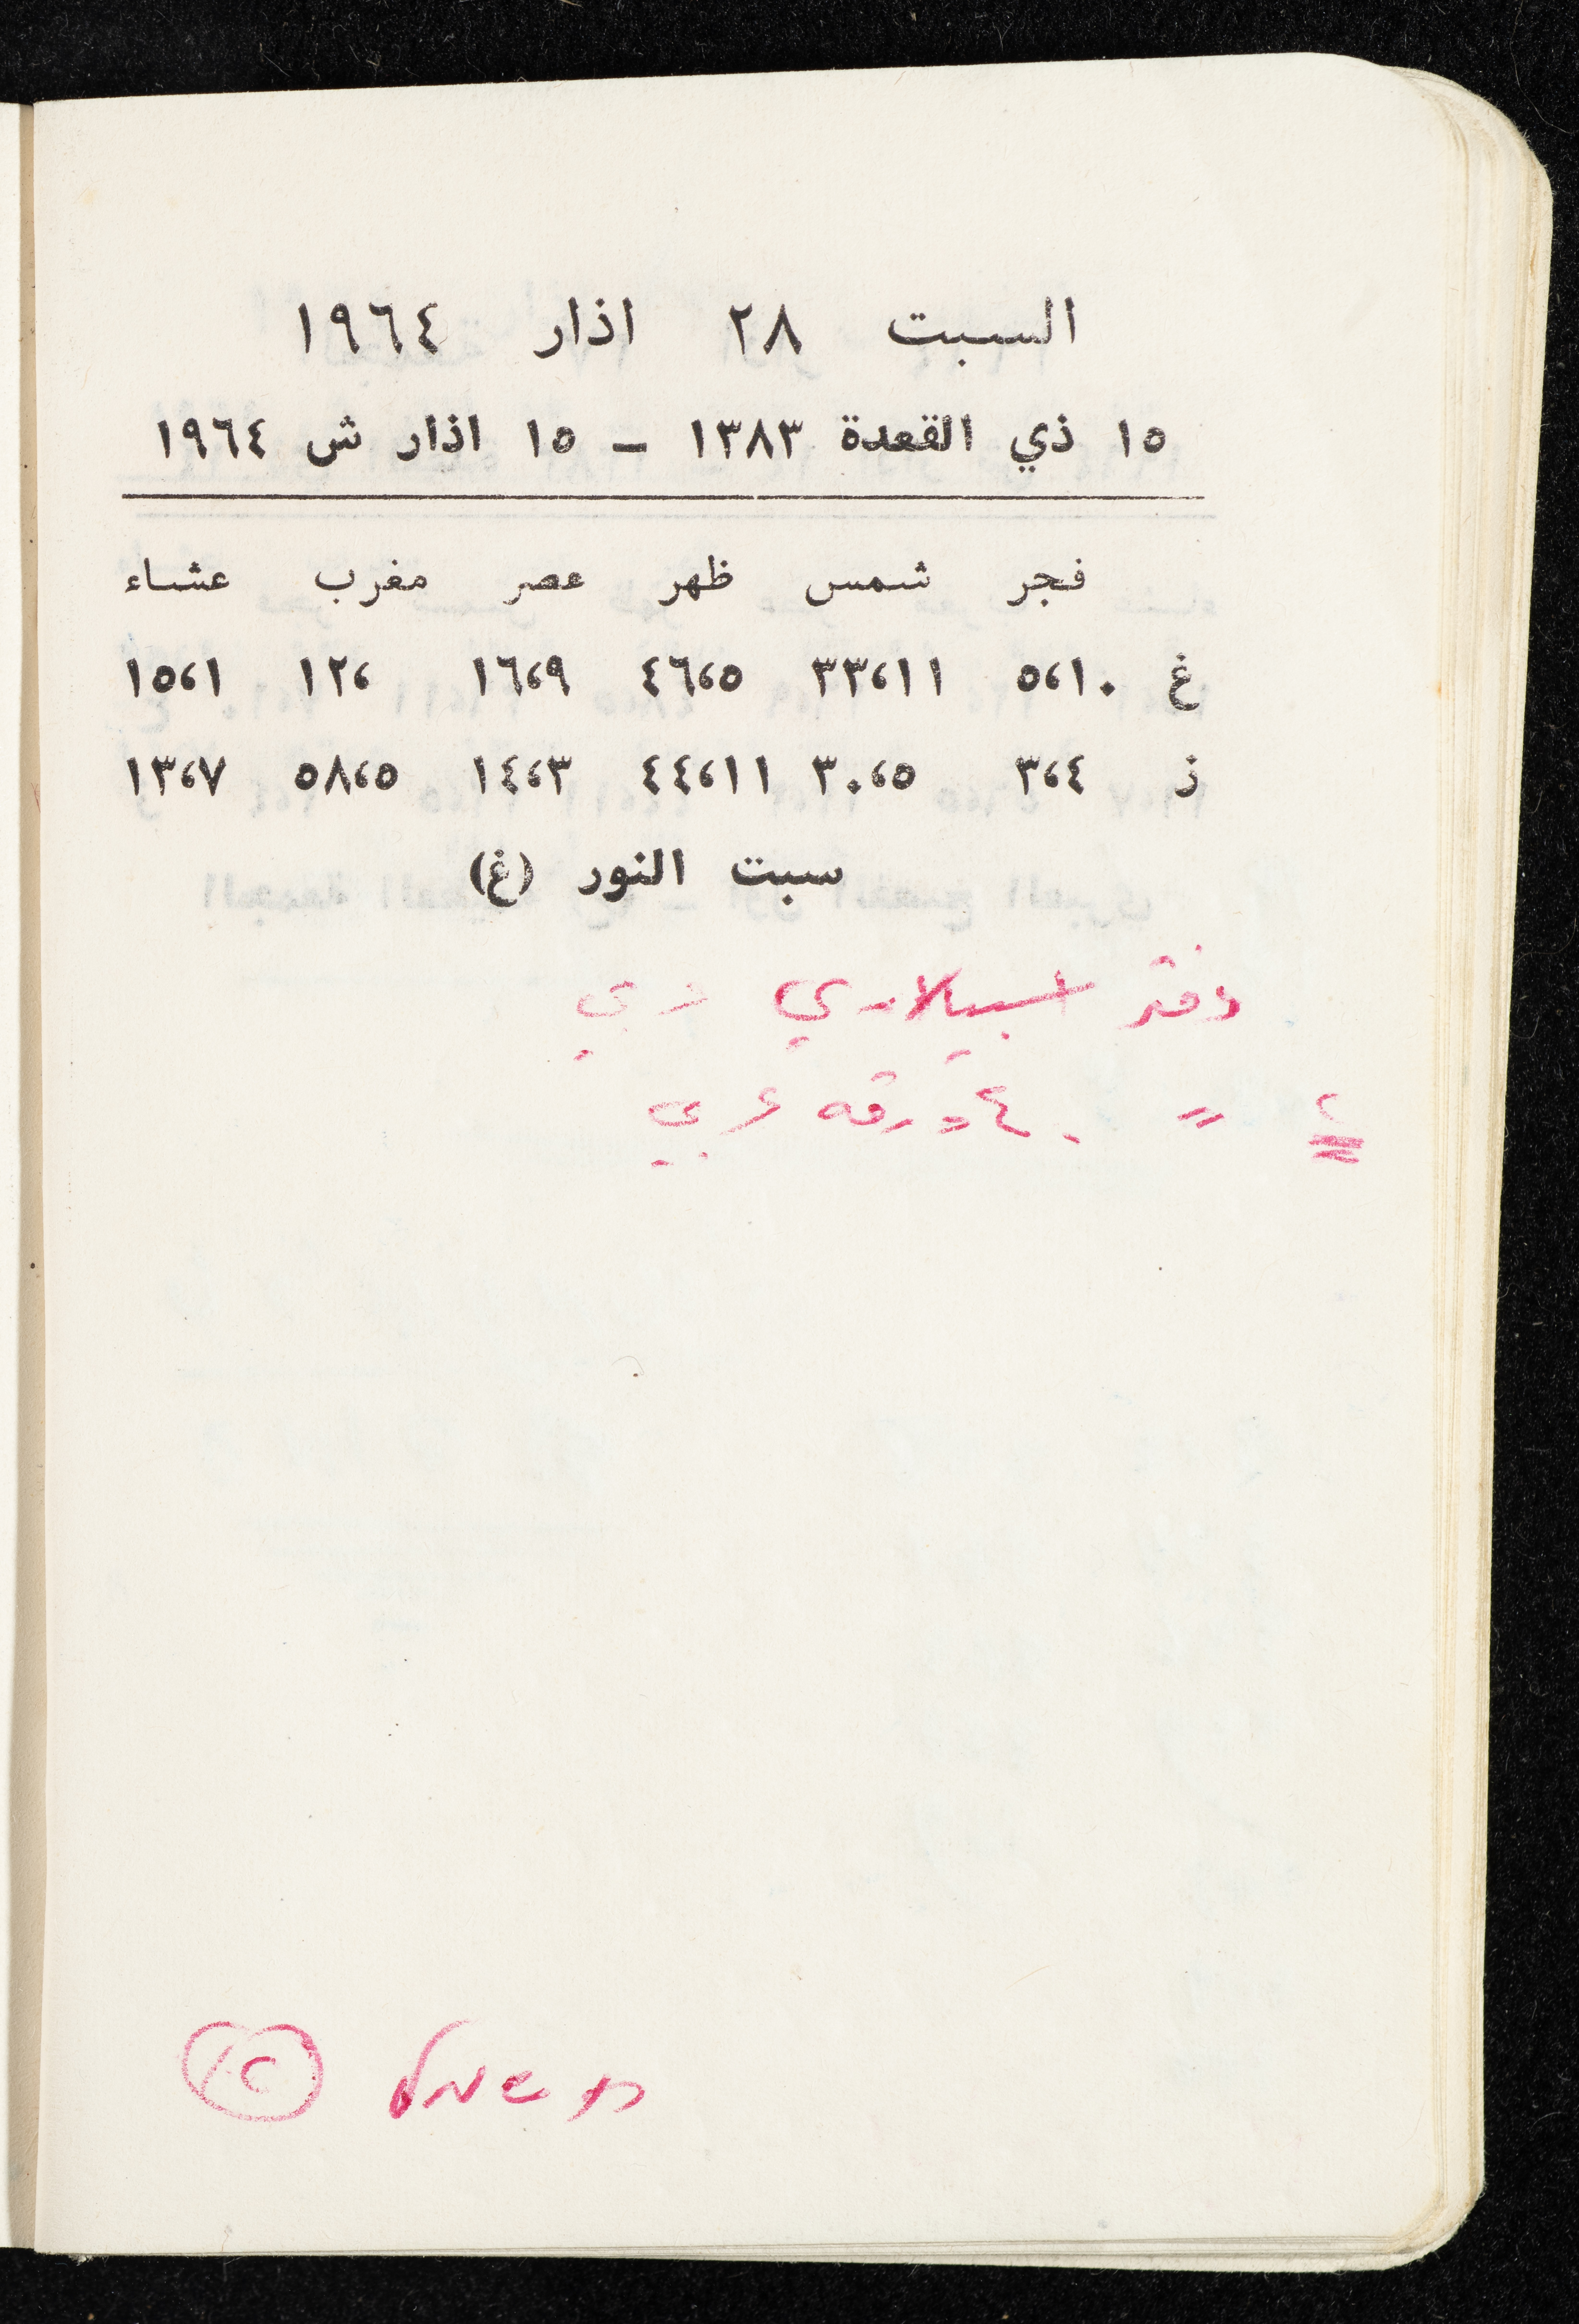 السبت ٢٨ اذار ١٩٦٤
١٥ ذي القعدة ١٣٨٣ – ١٥ اذار ش ١٩٦٤
فجر شمس ظهر عصر مغرب عشاء
غ ١٠،٥ ١١،٣٣ ٥،٤٦ ٩،١٦ ،١٢ ١،١٥
ز ٤،٣ ٥،٣٠ ١١،٤٤ ٣،١٤ ٥،٥٨ ٧،١٣
سبت النور (غ)
دفتر عربي
٢ = ٤٠ ورقه عربي